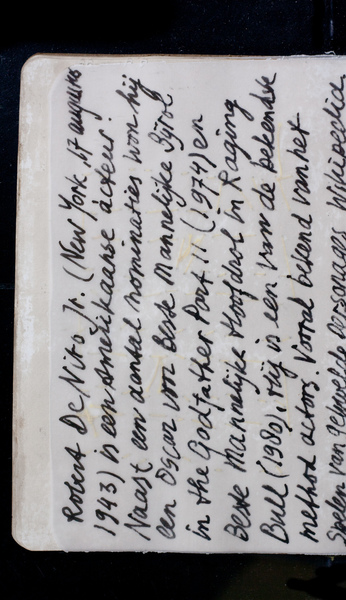 Robert De Niro Jr. (New York, 17 augustus
1943) is een Amerikaanse acteur.
Naast een aantal nominaties won hij
een Oscar voor Beste Mannelijke Bijrol
in the Godfather Part II (1974) en
Beste Mannelijke Hoofdrol in Raging
Bull (1980). Hij is een van de bekendste
method actors. Vooral bekend van het
Spelen van Gemene personages Wikipedia